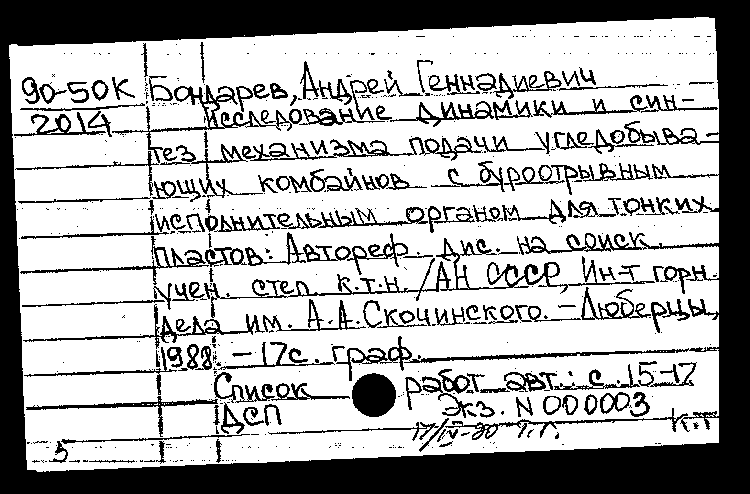 90-50К Бондарев, Андрей Геннадиевич
2014 Исследование динамики и син-
тез механизма подачи угледобыва-
ющих комбайнов с буроотрывным
исполнительным органом для тонких
пластов: Автореф. дис. на соиск.
учен. степ. к.т.н. /АН СССР, Ин-т горн.
дела им. А.А.Скочинского. - Люберцы,
1988. - 17с. граф.
Список работ авт.: с. 15-17
ДСП Экз. N 000003
17/IV-90 к.т
5